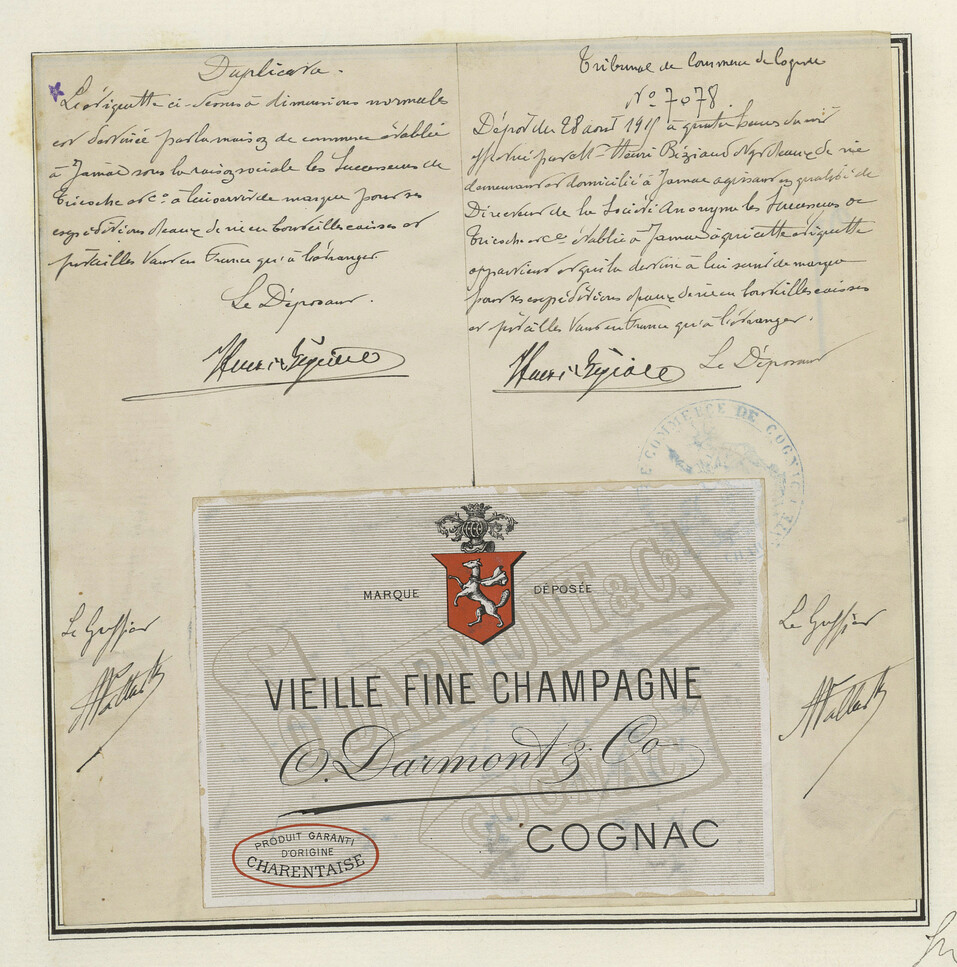 Duplicata.
L'étiquette ci-dessus à dimensions normales
est destinée par la maison de commerce établie
à Jarnac sous la raison sociale les Successeurs de
Tricoche et Cº à leur servir de marque pour ses
expéditions d'eaux de vie en bouteilles caisses et
futailles tant en France qu'à l'étranger
Le Déposant.
Henri
Le Greffier
Tribunal de Commerce de Cognac
Nº 7078.
Dépôt du 28 août à quatre heures du soir
par Mr Henri d'eaux de vie
demeurant et domicilié à Jarnac agissant en qualité de
Directeur de la Société Anonyme les Successeurs de
Tricoche et Cº établie à Jarnac à qui cette étiquette
appartient et qui la destine à lui servir de marque
pour ses expéditions d'eaux de vie en bouteilles caisses
et futailles tant en France qu'à l'étranger.
Henri
Le Déposant
COMMERCE DE COGNAC
Le Greffier
MARQUE DÉPOSÉE
O. DARMONT & Cº.
COGNAC
VIEILLE FINE CHAMPAGNE
O. Darmont & Co
COGNAC
PRODUIT GARANTI
D'ORIGINE
CHARENTAISE